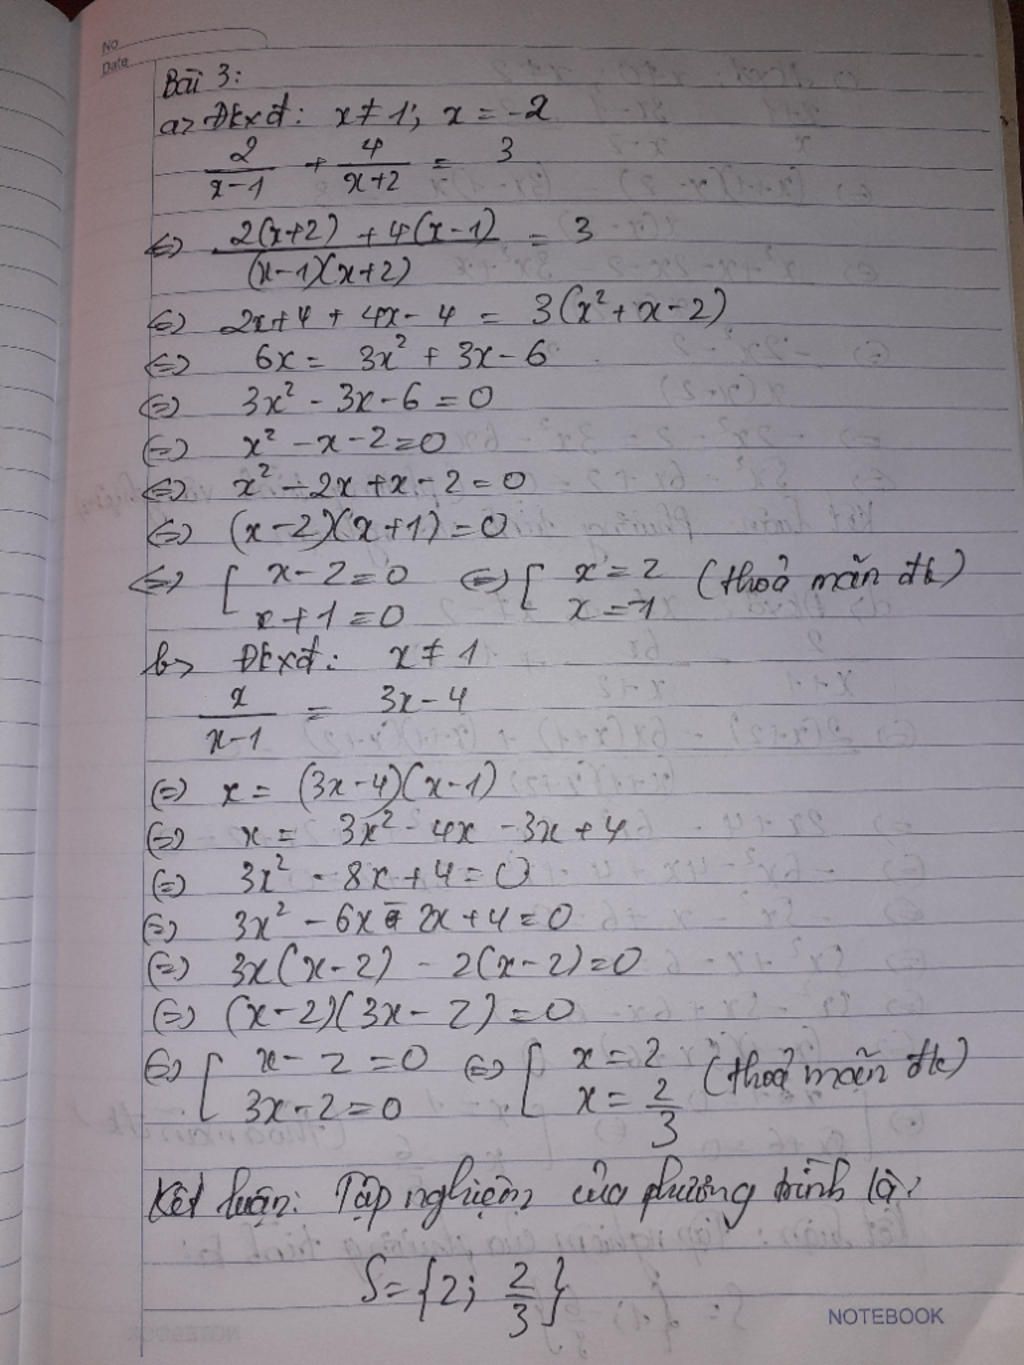 No
Date
Bài 3:
a> Đkxđ: x ≠ 1; x = -2
2/(x-1) + 4/(x+2) = 3
<=> (2(x+2) + 4(x-1))/((x-1)(x+2)) = 3
<=> 2x+4 + 4x-4 = 3(x² + x - 2)
<=> 6x = 3x² + 3x - 6
<=> 3x² - 3x - 6 = 0
<=> x² - x - 2 = 0
<=> x² - 2x + x - 2 = 0
<=> (x-2)(x+1) = 0
<=> [ x-2=0 <=> [ x=2 (thoả mãn đk)
x+1=0 x=-1
b> Đkxđ: x ≠ 1
x/(x-1) = 3x-4
<=> x = (3x-4)(x-1)
<=> x = 3x² - 4x - 3x + 4
<=> 3x² - 8x + 4 = 0
<=> 3x² - 6x - 2x + 4 = 0
<=> 3x(x-2) - 2(x-2) = 0
<=> (x-2)(3x-2) = 0
<=> [ x-2=0 <=> [ x=2 (thoả mãn đk)
3x-2=0 x=2/3
Kết luận: Tập nghiệm của phương trình là:
S={2; 2/3}
NOTEBOOK